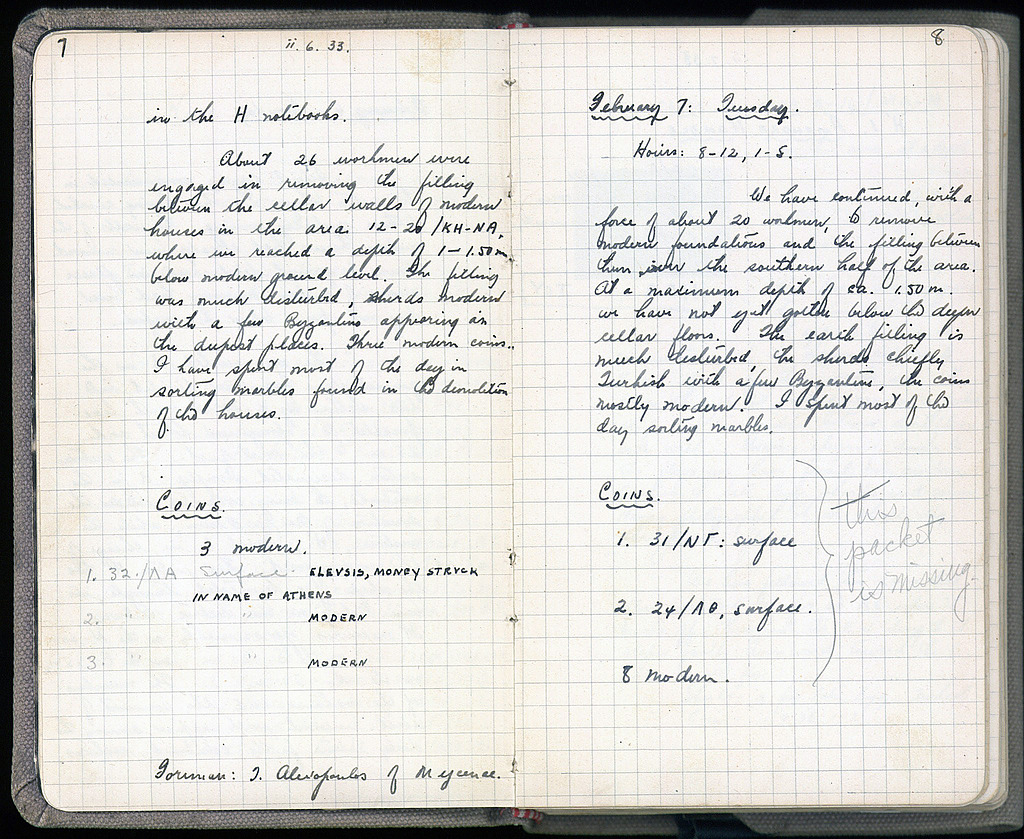 7
ii. 6. 33.
in the H notebooks.
About 26 workmen were
engaged in removing the filling
between the cellar walls of modern
houses in the area 12-20/ΚΗ-ΝΑ,
where we reached a depth of 1-1.50 m.
below modern ground level. The filling
was much disturbed, sherds modern
with a few Byzantine appearing in
the deepest places. Three modern coins.
I have spent most of the day in
sorting marbles found in the demolition
of the houses.
COINS.
3 modern.
1. 32/ΛΑ Surface. ELEVSIS, MONEY STRVCK
IN NAME OF ATHENS
2. " " MODERN
3. " " MODERN
Foreman: I. Alexopoulos of Mycenae.
8
February 7: Tuesday.
Hours: 8-12, 1-5.
We have continued, with a
force of about 20 workmen, to remove
modern foundations and the filling between
them over the southern half of the area.
At a maximum depth of ca. 1.50 m.
we have not yet gotten below the deeper
cellar floors. The earth filling is
much disturbed, the sherds chiefly
Turkish with a few Byzantine, the coins
mostly modern. I spent most of the
day sorting marbles.
COINS.
1. 31/ΝΓ: surface
2. 24/ΛΘ, surface.
8 modern.
this
packet
is missing.